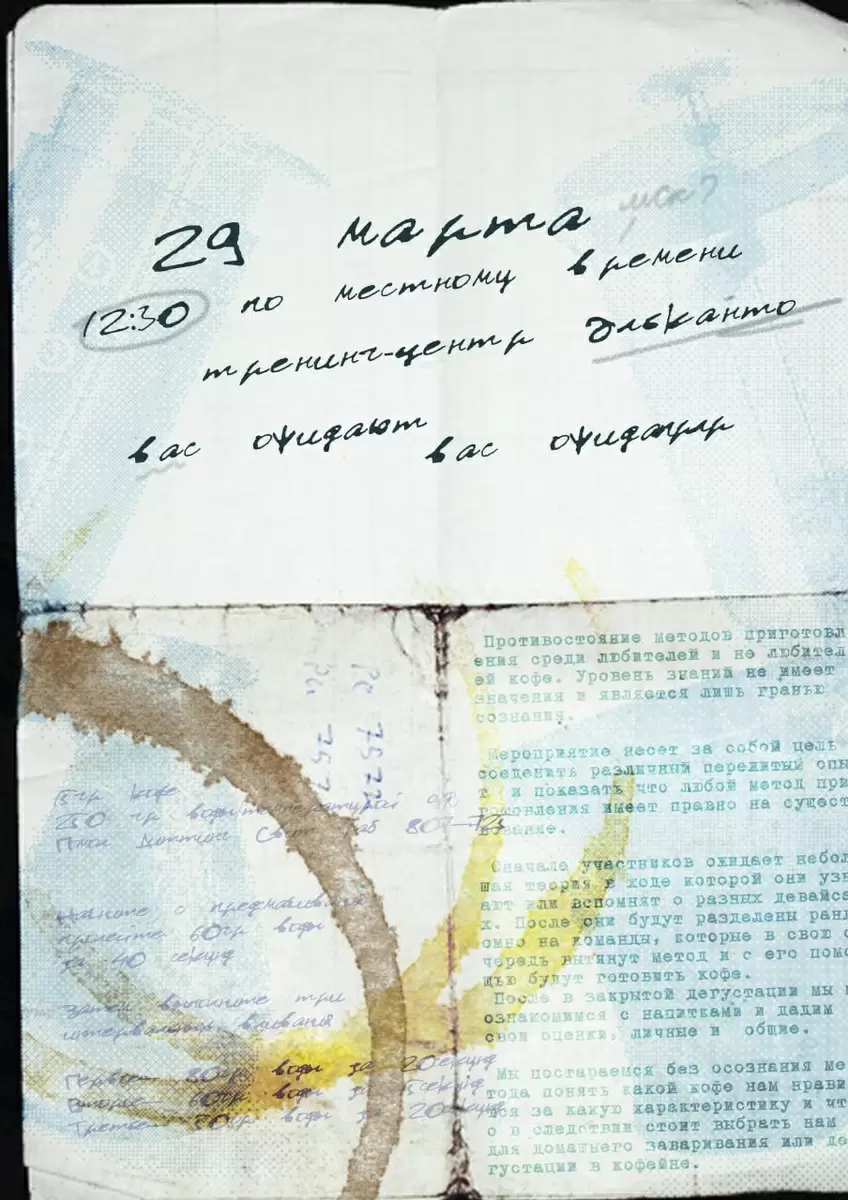 29 марта
мск?
12:30 по местному времени
тренинг-центр Эльканто
вас ожидают вас ожидают
Противостояние методов приготовл
ения среди любителей и не любител
ей кофе. Уровень знаний не имеет
значения и является лишь гранью
сознания.
Мероприятие несет за собой цель
соеденить различный пережитый опы
т и показать что любой метод при
готовления имеет правно на сущест
вование.
Сначале участников ожидает небол
шая теория в ходе которой они узн
ают или вспомнят о разных девайса
х. После они будут разделены ранд
омно на команды, которые в свою о
чередь вытянут метод и с его помо
щью будут готовить кофе.
После в закрытой дегустации мы
ознакомимся с напитками и дадим
свои оценки, личные и общие.
Мы постараемся без осознания ме
тода понять какой кофе нам нрави
тся за какую характеристику и чт
о в следствии стоит выбрать нам
для домашнего заваривания или де
густации в кофейне.
15гр кофе
250 гр воды температурой
Начните с предмачивания
пролейте 60гр воды
за 40 секунд
Затем выполните три
интервальных вливания
Первое 80гр воды за 20секунд
Второе 60гр воды за 15секунд
Третье 50гр воды за 20секунд